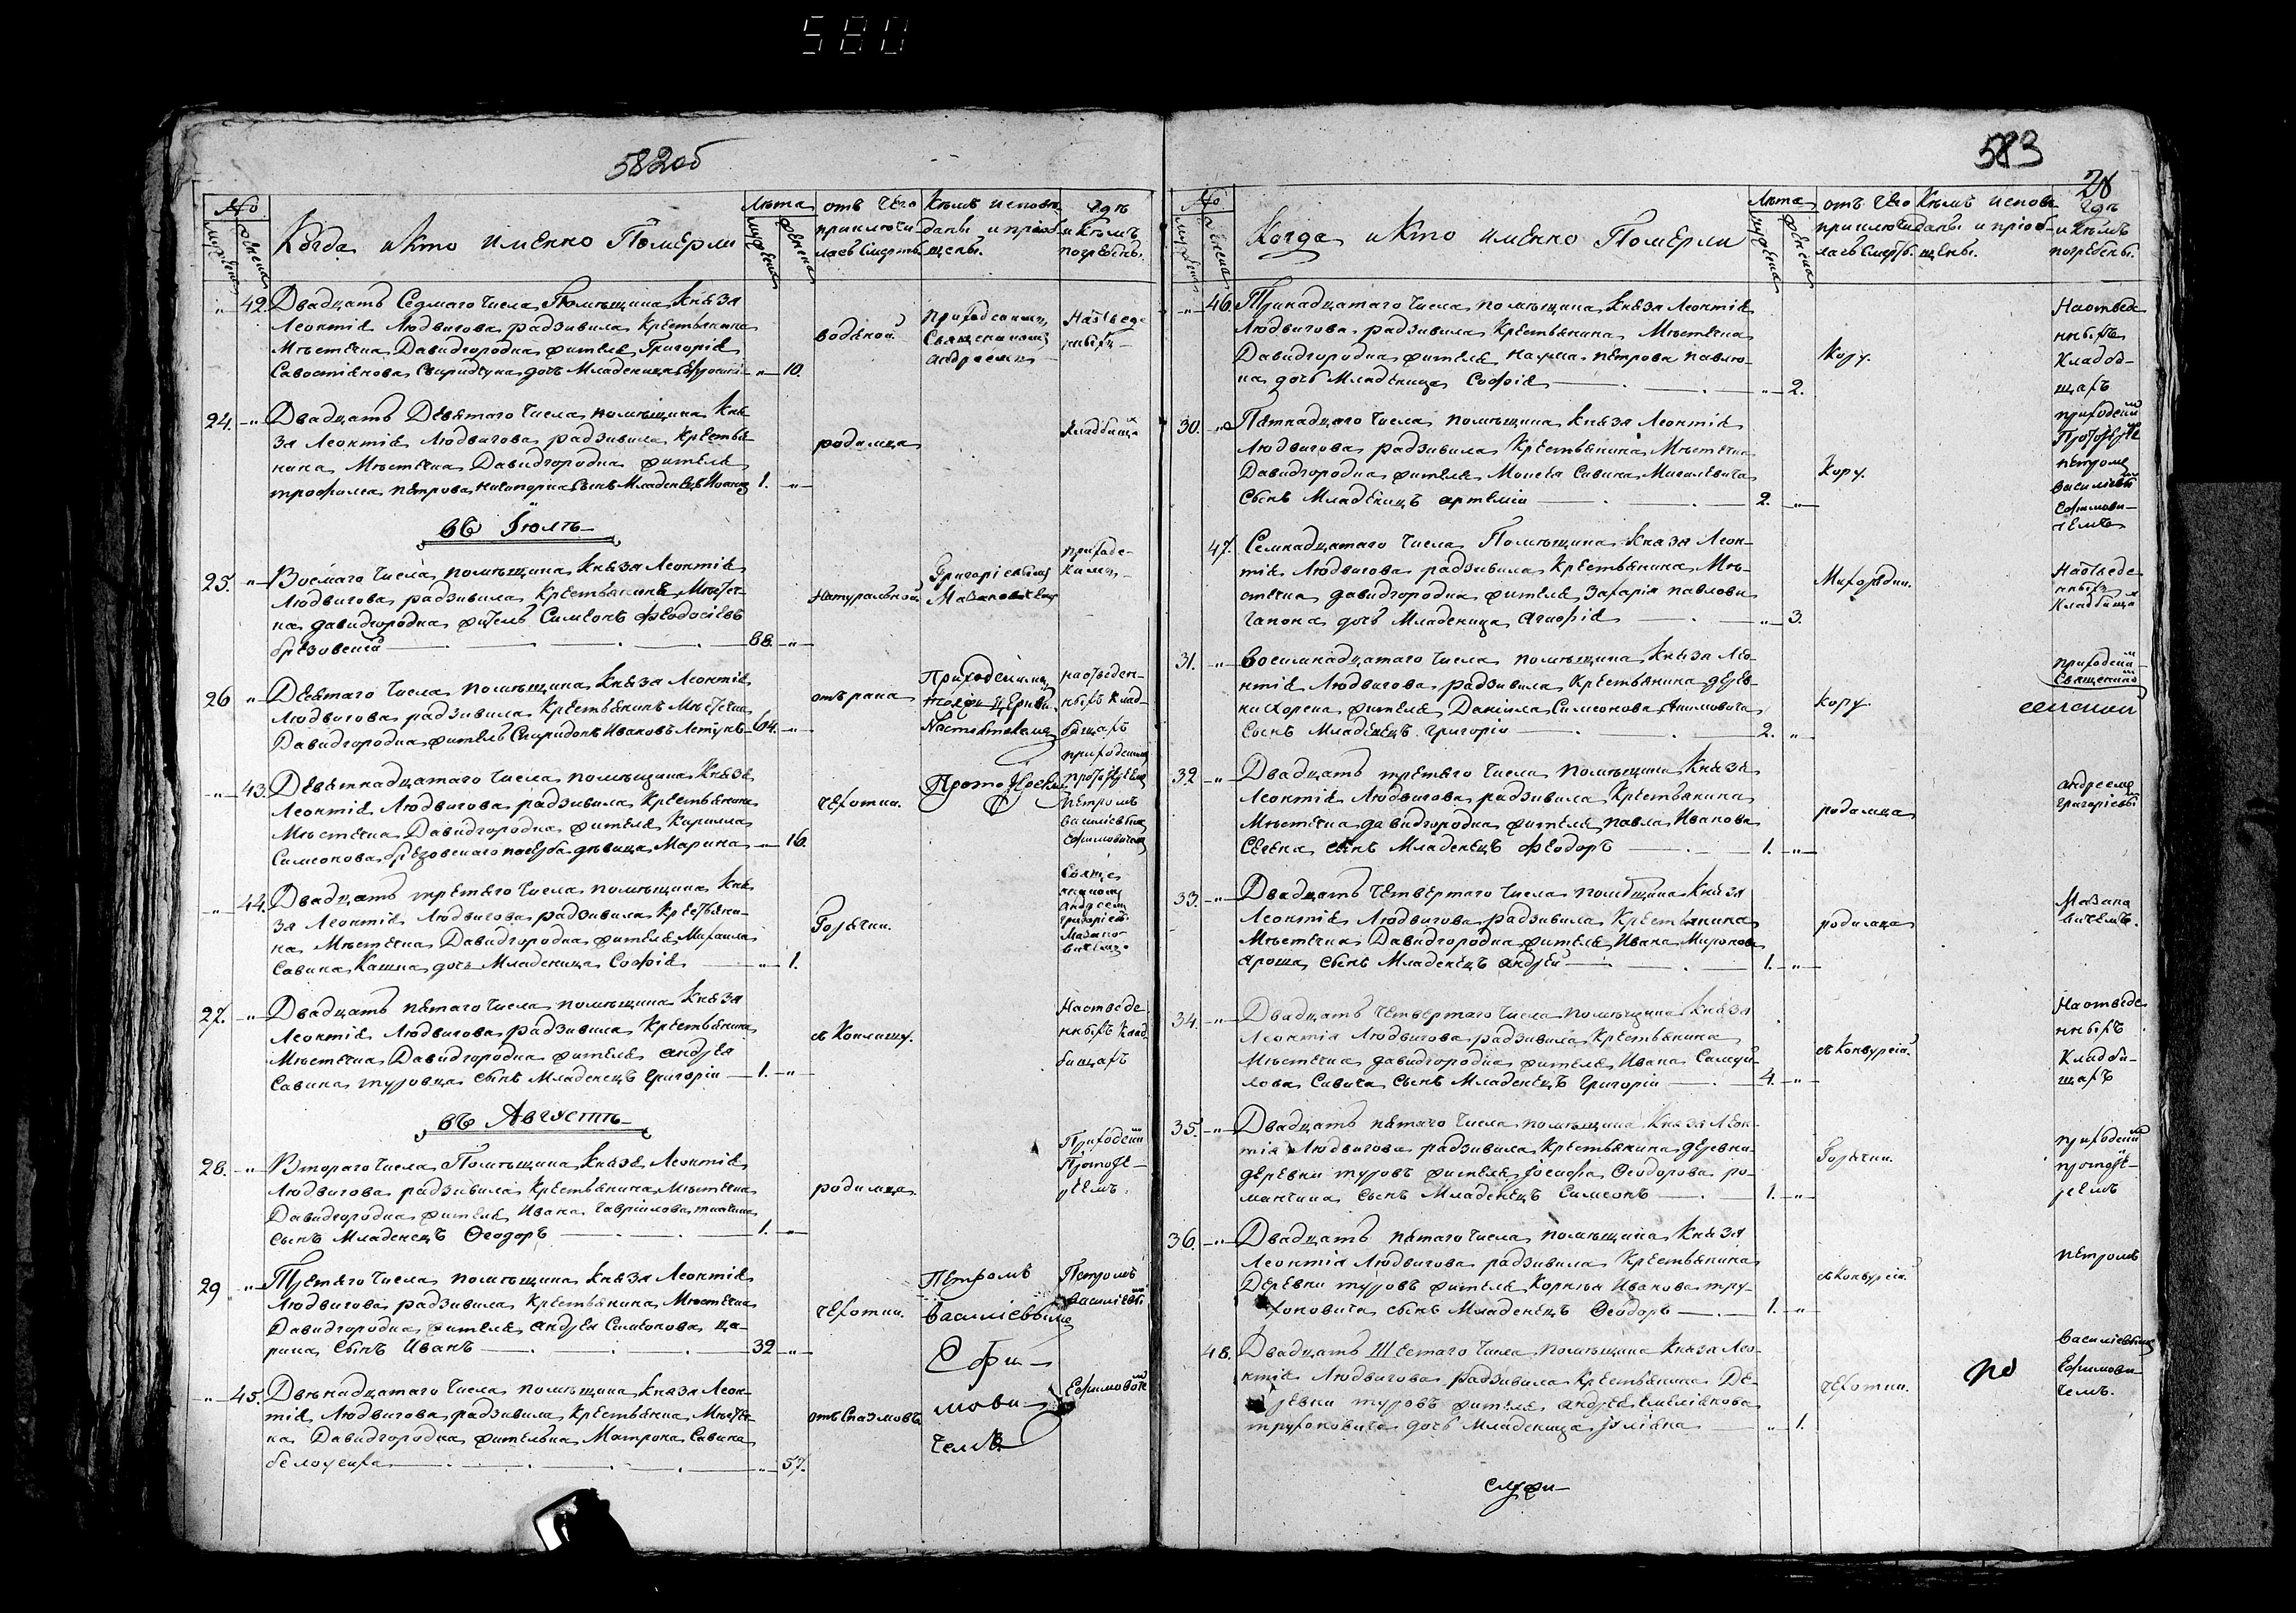 580
582об
№
мужеска
женска
Когда и кто именно Померли
Лѣта
мужеска
женска
отъ чего приключилась смерть
Кѣмъ исповѣданы и пріобщены.
Гдѣ и кѣмъ погребены.
„ 42. Двадцать Седмаго числа Помѣщика Князя
Леонтія Людвигова радзивила Крестьянина
Мѣстечка Давидгородка жителя Григорія
Савостіянова дочь Младеница „ 10.
водяной
Приходскимъ
Священникомъ
Андреемъ
На отведе
24. „ Двадцать Девятаго числа помѣщика Кня-
зя Леонтія Людвигова радзивила Крестья-
нина Мѣстечка Давидгородка жителя
трофима Петрова сынъ Младенецъ Иоаннъ 1. „
родимца
Кладбищахъ
въ Іюлѣ
25. „ Восмаго числа помѣщика Князя Леонтія
Людвигова радзивила Крестьянинъ Мѣстеч-
ка давидгородка житель Симеонъ Феодосіевъ
брезовскій 68. „
натуральной
Григоріевымъ
Мазановичемъ
26 „ Девятаго числа помѣщика Князя Леонтія
Людвигова радзивила Крестьянинъ Мѣстечка
Давидгородка житель Спиридонъ Ивановъ Летунъ 64. „
отъ рака
Приходскимъ
тояжъ Церкви
Настоятелемъ
на отведен-
ныхъ клад-
бищахъ
приходскимъ
„ 43. Девятнадцатаго числа помѣщика Князя
Леонтія Людвигова радзивила Крестьянина
Мѣстечка Давидгородка жителя Кирилла
Симеонова брезовскаго дѣвица Марина „ 16.
чехотки.
Протоіереемъ
протоіереемъ
Петромъ
василіевымъ
Ефимовичемъ
„ 44. Двадцать третяго числа помѣщика Кня-
зя Леонтія Людвигова радзивила Крестьяни-
на Мѣстечка Давидгородка жителя Михаила
Савина Кашка дочь Младеница Софія „ 1.
Горячки.
Свяще
нникомъ
андреем
григоріевы
Мазано
вичемъ
27. „ Двадцать пятаго числа помѣщика Князя
Леонтія Людвигова радзивила Крестьянина
Мѣстечка Давидгородка жителя андрея
Савина туровца сынъ Младенецъ Григорій 1. „
На отведе
нныхъ клад
бищахъ
въ Августѣ
28. „ Втораго числа Помѣщика Князя Леонтія
Людвигова радзивила Крестьянина Мѣстечка
Давидгородка жителя Ивана Гавріилова
сынъ Младенецъ Ѳеодоръ 1. „
родимца
Приходскимъ
Протоіе-
реемъ.
29 „ Третяго числа помѣщика Князя Леонтія
Людвигова радзивила Крестьянина Мѣстечка
Давидгородка жителя андрея Симеонова ца-
рика, сынъ Иванъ 32 „
чехотки.
Петромъ
Василіевымъ
Ефи-
мови-
чемъ
Петромъ
василіевы
„ 45. Двѣнадцатаго числа помѣщика Князя Леон-
тія Людвигова радзивила Крестьянка Мѣстеч-
ка Давидгородка жителька Матрона Савина
белоусиха „ 57.
отъ Спазмовъ
Ефимовиче
583
28
№
мужеска
женска
Когда и кто именно Померли
Лѣта
мужеска
женска
отъ чего приключилась смерть.
Кѣмъ исповѣданы и пріобщены.
Гдѣ и кѣмъ погребены.
„ 46. Тринадцатаго числа помѣщика Князя Леонтія
Людвигова радзивила Крестьянина Мѣстечка
Давидгородка жителя наума петрова павлю-
ка дочь Младеница Софія „ 2.
Кору.
На отведе
нныхъ
Кладби-
щахъ
30. „ Пятнадцаго числа помѣщика Князя Леонтія
Людвигова радзивила Крестьянина Мѣстечка
Давидгородка жителя Моисея Савина Мисилевича
сынъ Младенецъ артемій 2. „
Кору.
приходским
Протоіере
петромъ
василіевы
Ефимови-
чемъ
47. Семнадцатаго числа Помѣщика Князя Леон-
тія Людвигова радзивила Крестьянина Мѣ-
стечка давидгородка жителя Захарія павлова
Гапона дочь Младеница Агафія „ 3.
На отведе
нныхъ
Кладбища
31. „ Восимнадцатаго числа помѣщика Князя Лео-
нтія Людвигова радзивила Крестьянина дерев-
ни Хорска жителя Даніила Симеонова
сынъ Младенецъ Григорій 2. „
Кору.
приходским
Священно
32. „ Двадцать третяго числа помѣщика Князя
Леонтія Людвигова радзивила Крестьянина
Мѣстечка давидгородка жителя павла Иванова
сынъ Младенецъ Феодоръ 1. „
родимца
андреемъ
григоріевы
33. „ Двадцать четвертаго числа помѣщика Князя
Леонтія Людвигова радзивила Крестьянина
Мѣстечка Давидгородка жителя Ивана Миронова
яроша сынъ Младенецъ андрей 1. „
родимца
Мазано
вичемъ.
34. „ Двадцать четвертаго числа помѣщика Князя
Леонтія Людвигова радзивила Крестьянина
Мѣстечка давидгородка жителя Ивана Самуй-
лова Савича сынъ Младенецъ Григорій 4. „
На отведе
нныхъ
Кладби-
щахъ
35. „ Двадцать пятаго числа помѣщика Князя Леон-
тія Людвигова радзивила Крестьянина деревни
деревни туровъ жителя Іосифа Ѳеодорова ро-
манчика сынъ Младенецъ Симеонъ 1. „
Горячки.
приходским
протоіе-
реемъ
36. „ Двадцать пятаго числа помѣщика Князя
Леонтія Людвигова радзивила Крестьянина
Деревни туровъ жителя Корнія Иванова тру-
хоновича сынъ Младенецъ Ѳеодоръ 1. „
петромъ
48. Двадцать Шестаго числа помѣщика Князя Лео-
нтія Людвигова радзивила Крестьянина Де-
ревни туровъ жителя андрея Емеліянова
трухоновича дочь Младеница Іуліяна „ 1.
чехотки.
по
василіевымъ
Ефимови-
чемъ.